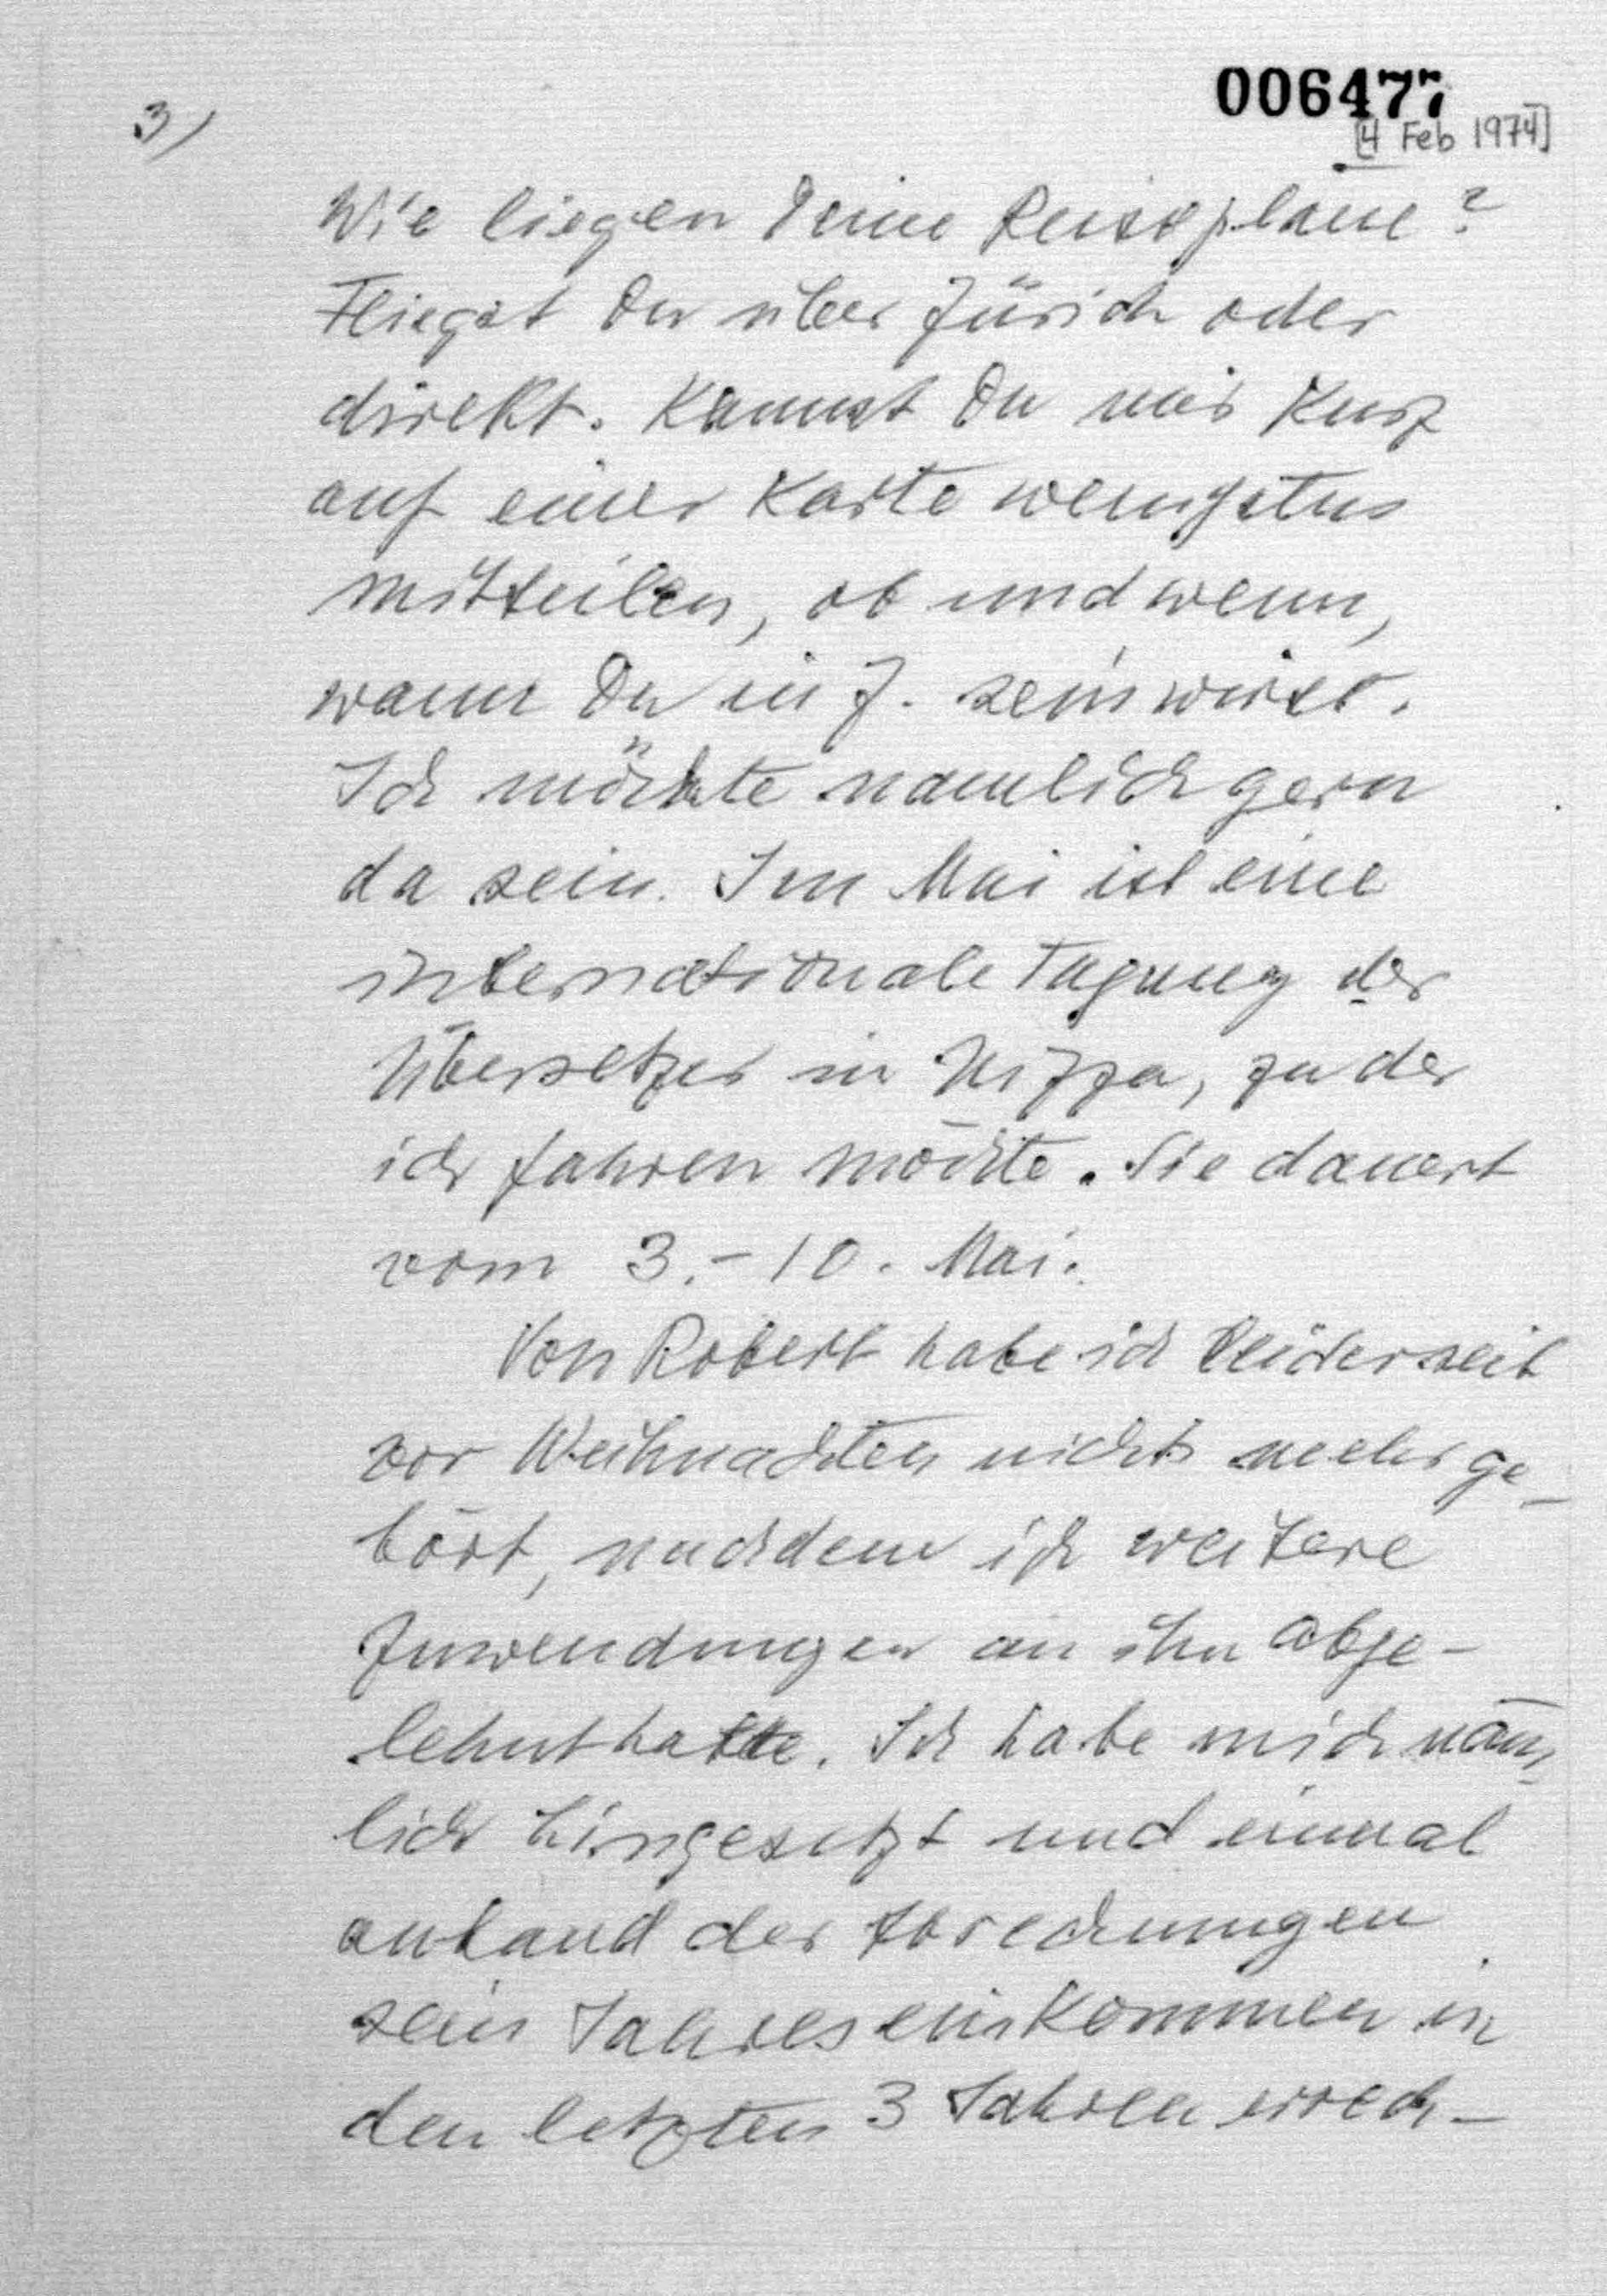 006477
3)
[4 Feb 1974]
Wie liegen Deine Reisepläne?
Fliegst Du über Zürich oder
direkt. Kannst Du mir kurz
auf einer Karte wenigstens
mitteilen, ob und wenn,
wann Du in Z. sein wirst.
Ich möchte nämlich gern
da sein. Im Mai ist eine
internationale Tagung der
Übersetzer in Nizza, zu der
ich fahren möchte. Sie dauert
vom 3.-10. Mai.
Von Robert habe ich leider seit
vor Weihnachten nichts mehr ge-
hört, nachdem ich weitere
Zuwendungen an ihn abge-
lehnt hatte. Ich habe mich näm-
lich hingesetzt und einmal
anhand der
sein Jahreseinkommen in
den letzten 3 Jahren errech-